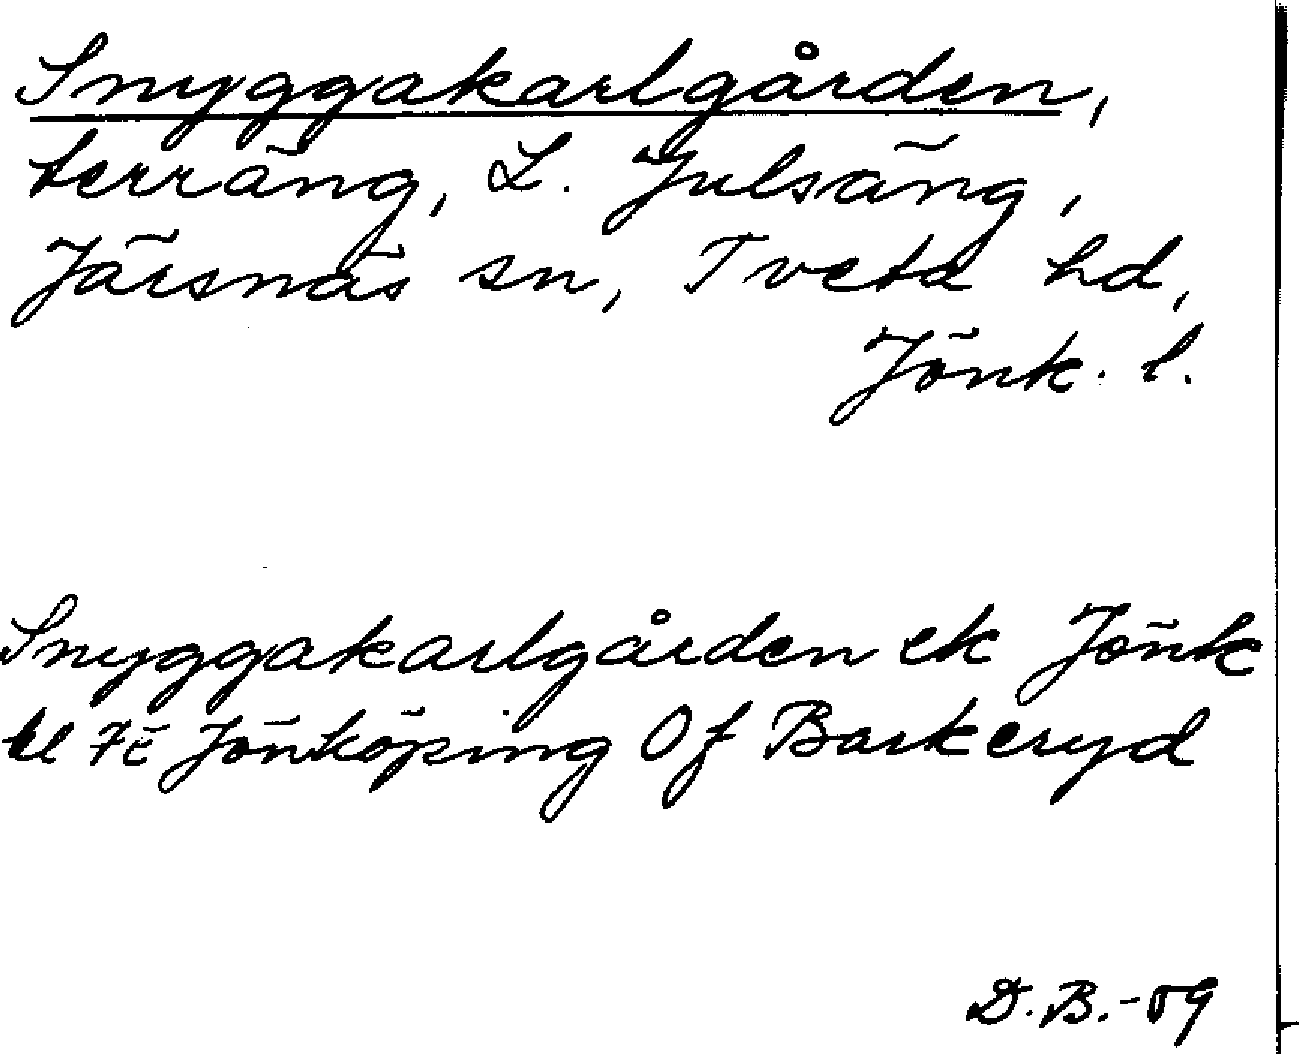 Snyggakarlgården,
terräng, L. Julsäng,
Järsnäs sn, Tveta hd,
Jönk. l.
Snyggakarlgården ek Jönk
bl 7c Jönköping Of Barkeryd
D.B.-59